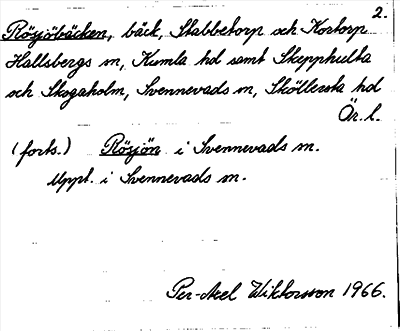 2.
Rösjöbäcken, bäck, Stabbetorp och Kortorp
Hallsbergs sn, Kumla hd samt Skepphulta
och Skogaholm, Svennevads sn, Sköllersta hd
Är. l.
(forts.) Rösjön i Svennevads sn.
Uppt. i Svennevads sn.
Per-Axel Wiktorsson 1966.